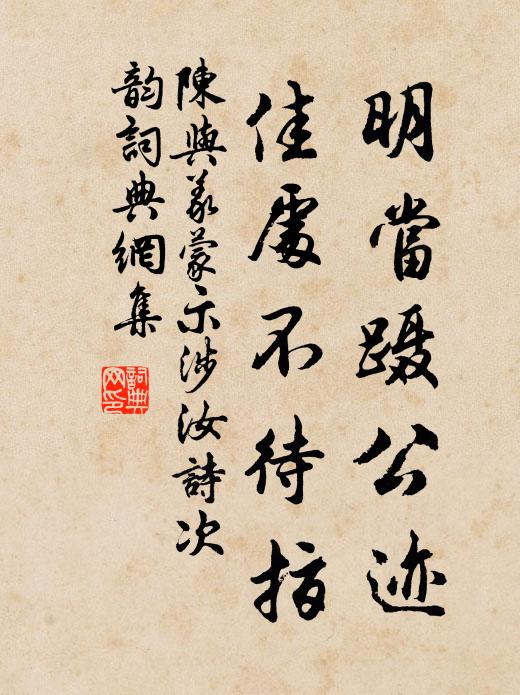 明當蹑公迹
佳處不待指
陳與義蒙示涉汝詩次
韵詞典網集
詞典
网印